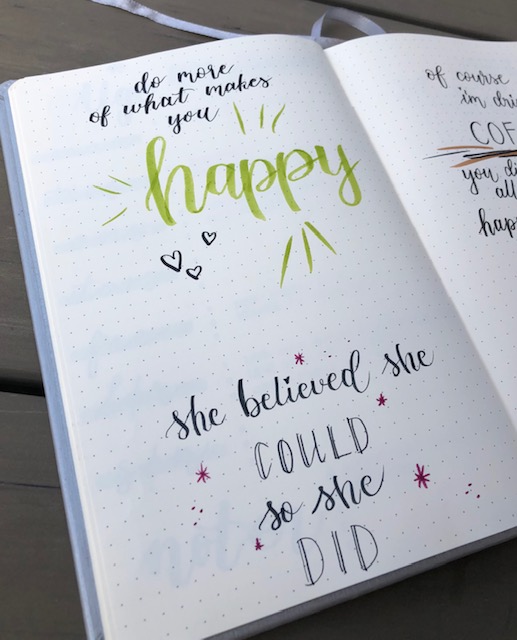 do more
of what makes
you
happy
she believed she
COULD
so she
DID
of course
i'm
you
all